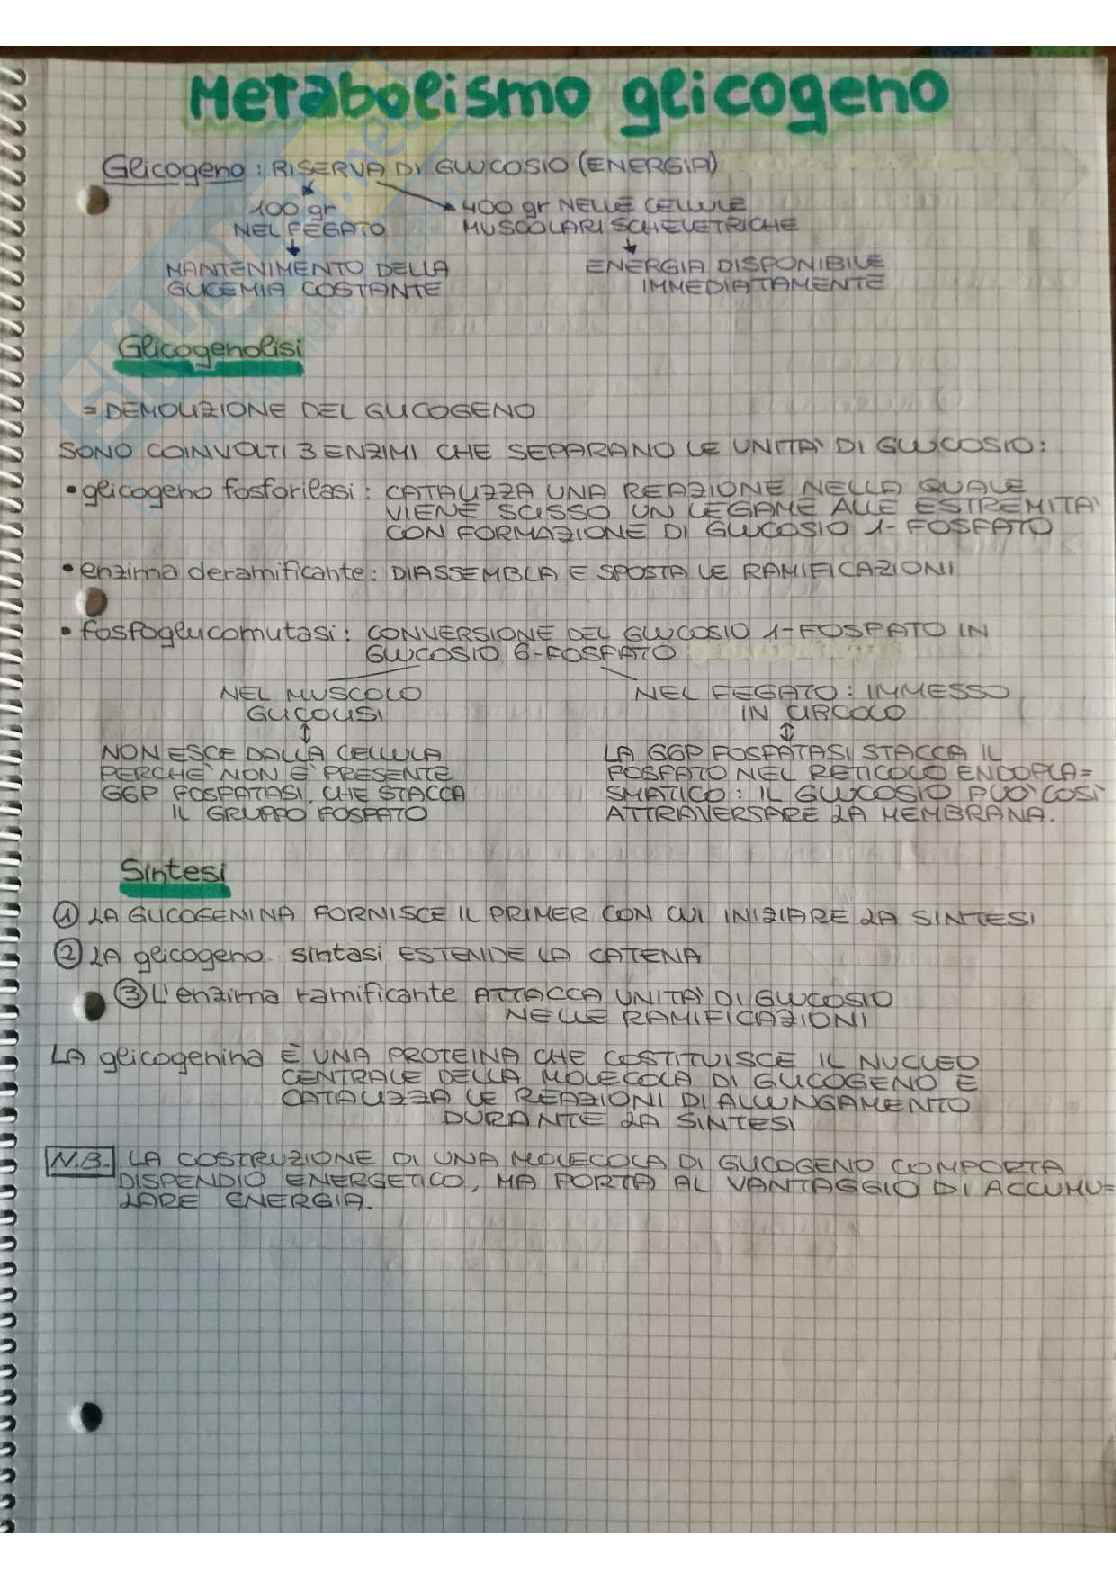 Metabolismo glicogeno
Glicogeno: RISERVA DI GLUCOSIO (ENERGIA)
100 gr
NEL FEGATO
400 gr NELLE CELLULE
MUSCOLARI SCHELETRICHE
MANTENIMENTO DELLA
GLICEMIA COSTANTE
ENERGIA DISPONIBILE
IMMEDIATAMENTE
Glicogenolisi
= DEMOLIZIONE DEL GLICOGENO
SONO COINVOLTI 3 ENZIMI CHE SEPARANO LE UNITA' DI GLUCOSIO:
• glicogeno fosforilasi: CATALIZZA UNA REAZIONE NELLA QUALE
VIENE SCISSO UN LEGAME ALLE ESTREMITA'
CON FORMAZIONE DI GLUCOSIO 1-FOSFATO
• enzima deramificante: DIASSEMBLA E SPOSTA LE RAMIFICAZIONI
• fosfoglucomutasi: CONVERSIONE DEL GLUCOSIO 1-FOSFATO IN
GLUCOSIO 6-FOSFATO
NEL MUSCOLO
GLICOLISI
NON ESCE DALLA CELLULA
PERCHE' NON E' PRESENTE
G6P FOSFATASI CHE STACCA
IL GRUPPO FOSFATO
NEL FEGATO: IMMESSO
IN CIRCOLO
LA G6P FOSFATASI STACCA IL
FOSFATO NEL RETICOLO ENDOPLA=
SMATICO: IL GLUCOSIO PUO' COSI'
ATTRAVERSARE LA MEMBRANA.
Sintesi
1 LA GLICOGENINA FORNISCE IL PRIMER CON CUI INIZIARE LA SINTESI
2 LA glicogeno sintasi ESTENDE LA CATENA
3 L'enzima ramificante ATTACCA UNITA' DI GLUCOSIO
NELLE RAMIFICAZIONI
LA glicogenina È UNA PROTEINA CHE COSTITUISCE IL NUCLEO
CENTRALE DELLA MOLECOLA DI GLICOGENO E
CATALIZZA LE REAZIONI DI ALLUNGAMENTO
DURANTE LA SINTESI
N.B. LA COSTRUZIONE DI UNA MOLECOLA DI GLICOGENO COMPORTA
DISPENDIO ENERGETICO, MA PORTA AL VANTAGGIO DI ACCUMU=
LARE ENERGIA.